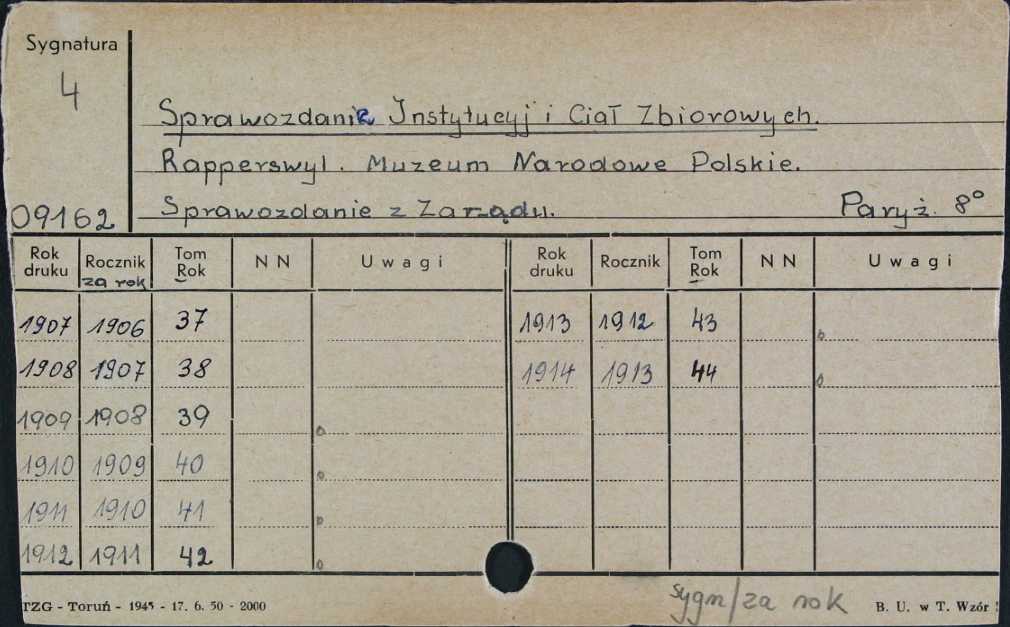 Sygnatura
4
Sprawozdanie Instytucyj i Ciał Zbiorowych.
Rapperswyl. Muzeum Narodowe Polskie.
09162 Sprawozdanie z Zarządu. Paryż. 8°
Rok druku Rocznik za rok Tom Rok NN Uwagi Rok druku Rocznik Tom Rok NN Uwagi
1907 1906 37 1913 1912 43
1908 1907 38 1914 1913 44
1909 1908 39
1910 1909 40
1911 1910 41
1912 1911 42
sygn/za rok
TZG - Toruń - 1945 - 17. 6. 50 - 2000 B. U. w T. Wzór